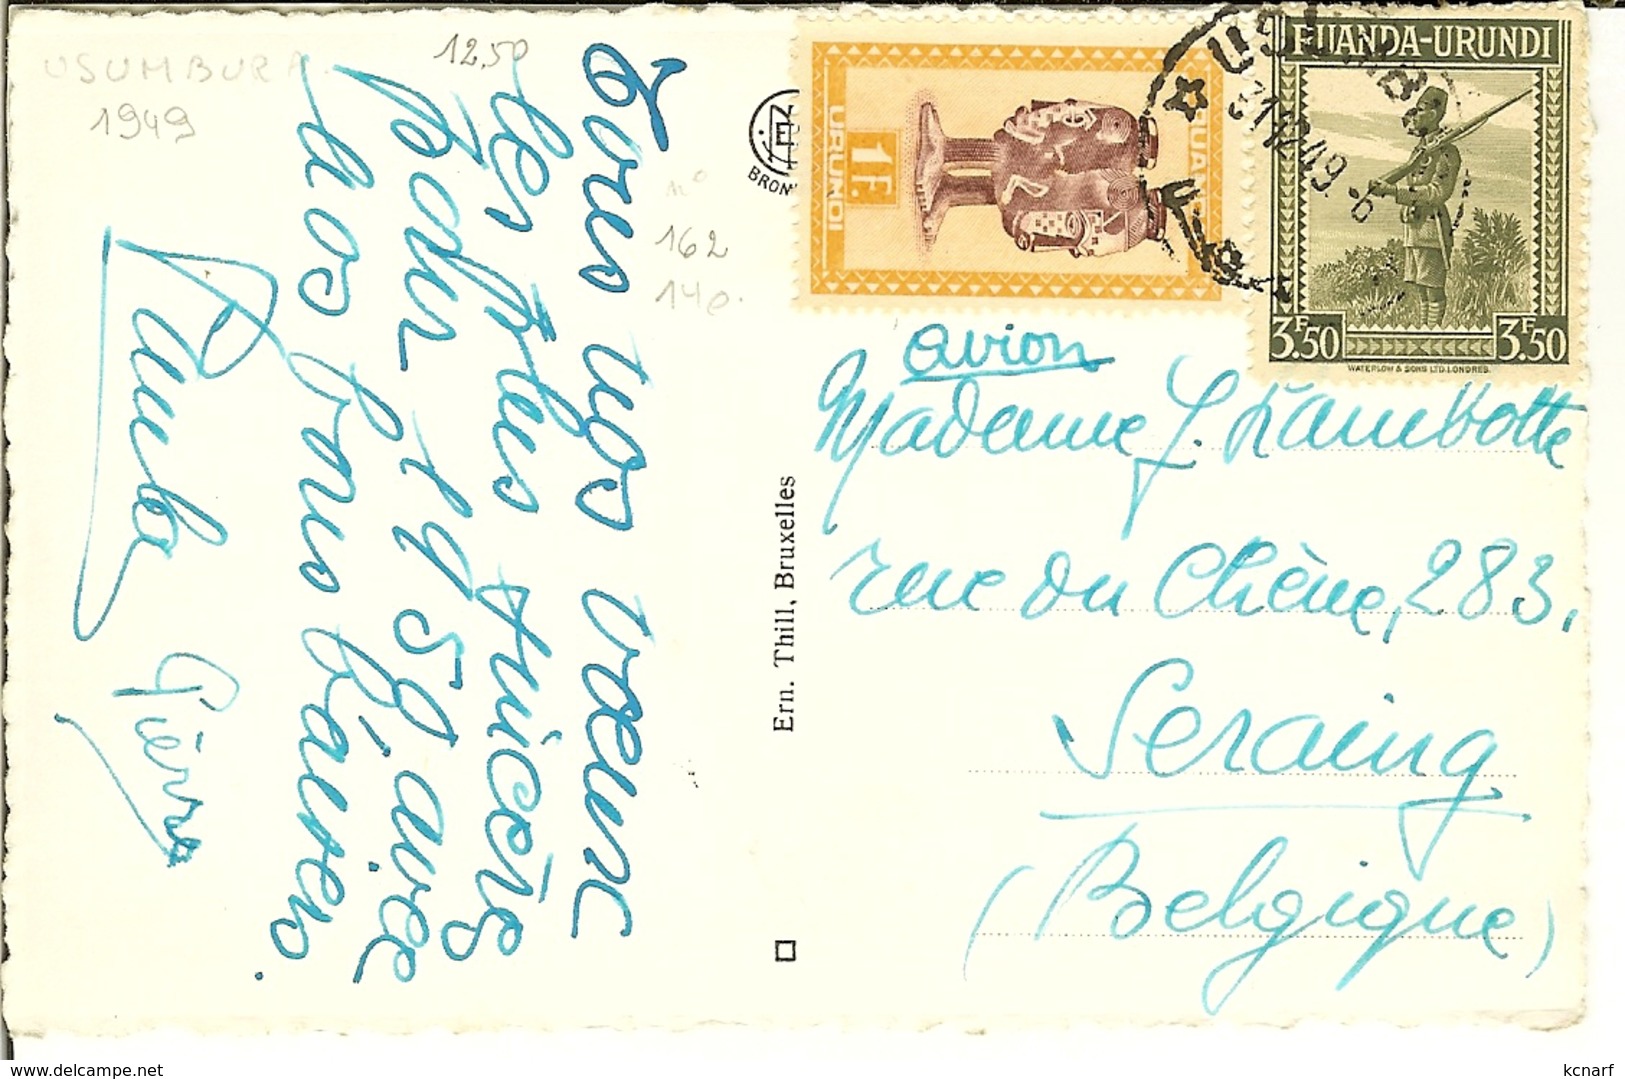 USUMBURA
1949
12,50
n°
162
140.
Tous nos voeux
les plus sincères
pour 1950 avec
nos bons baisers.
Paula
Pierre
BRON
Ern. Thill, Bruxelles
RUANDA
URUNDI
1 F.
RUANDA-URUNDI
3F50
3F50
WATERLOW & SONS LTD. LONDRES.
USUMBU
31 12 49
avion
Madame J. Rambotte
rue du Chêne, 283,
Seraing
(Belgique)
www.delcampe.net
kcnarf